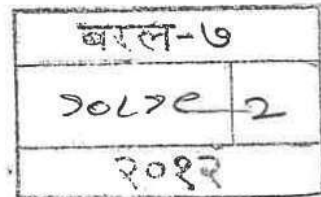 बरल-७
१०८१९ २
२०१२